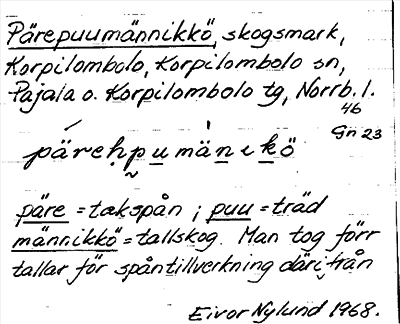 Pärepuumännikkö, skogsmark,
Korpilombolo, Korpilombolo sn,
Pajala o. Korpilombolo tg, Norrb. l.
46
Gn 23
pärehpumänıkö
päre = takspån ; puu = träd
männikkö = tallskog. Man tog förr
tallar för spåntillverkning därifrån
Eivor Nylund 1968.